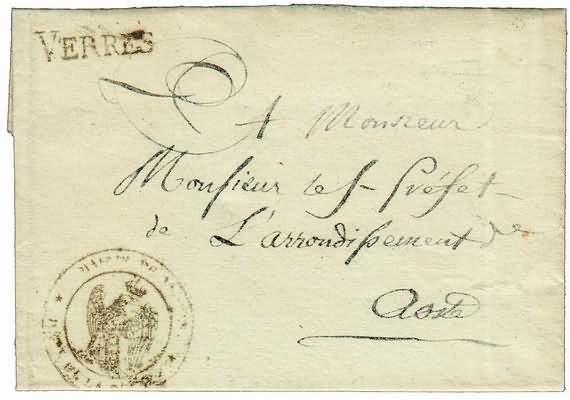 VERRES
A Monsieur
Monsieur le S- Préfet
de L'arrondissement de
Aoste
MAIRIE DE
DE LA